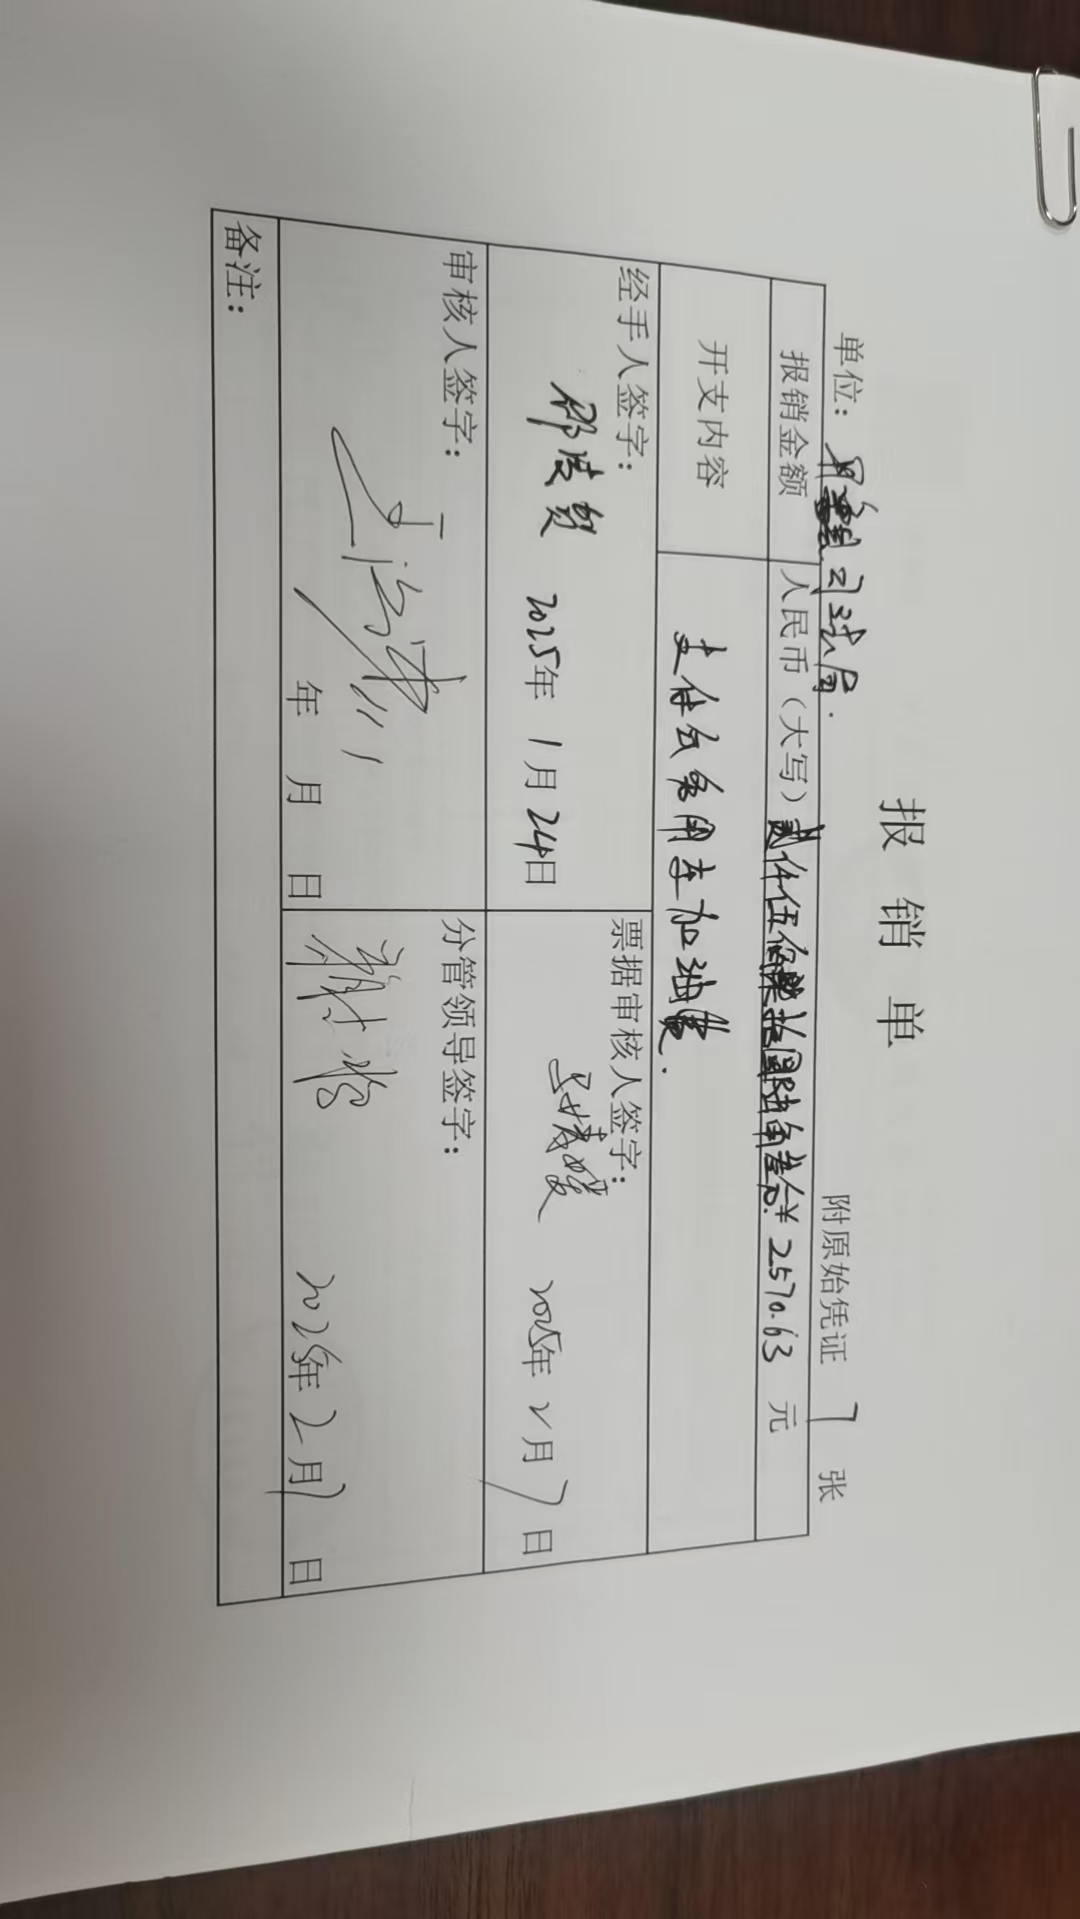 报销单
单位： 司法局. 附原始凭证 7 张
报销金额 人民币（大写）贰仟伍佰柒拾圆陆角叁分 ¥2570.63 元
开支内容 支付公务用车加油费.
经手人签字： 2025年 1月 24日
票据审核人签字： 2025年 2月 7日
审核人签字： 年 月 日
分管领导签字： 2025年 2月 7日
备注：